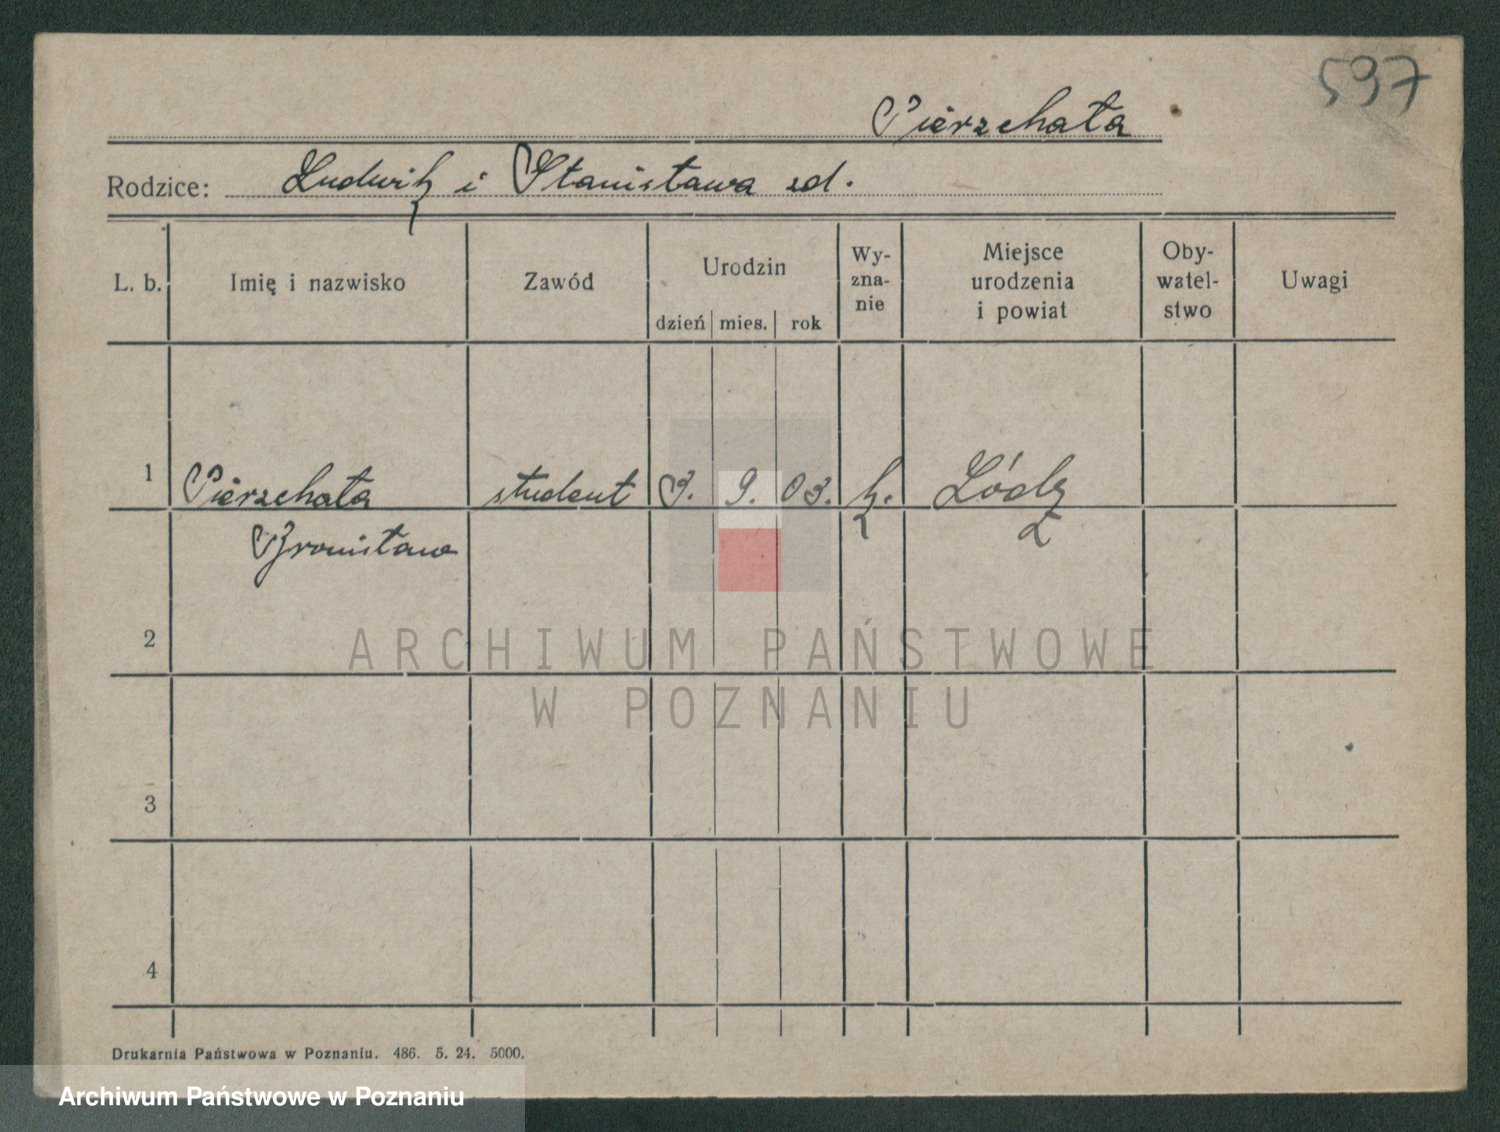 597
Pierzchała
Rodzice: Ludwik i Stanisława zd.
L. b.
Imię i nazwisko
Zawód
Urodzin
dzień mies. rok
Wy-
zna-
nie
Miejsce
urodzenia
i powiat
Oby-
watel-
stwo
Uwagi
1 Pierzchała student 3. 9. 03. k. Łódź
Bronisław
2
3
4
ARCHIWUM PAŃSTWOWE
W POZNANIU
Drukarnia Państwowa w Poznaniu. 486. 5. 24. 5000.
Archiwum Państwowe w Poznaniu